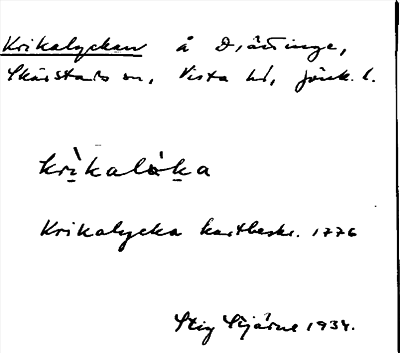 Krikalyckan å Drättinge,
Skärstads sn, Vista hd, Jönk. l.
krìkaloka
Krikalycka kartbeskr. 1776
Stig Stjärne 1934.